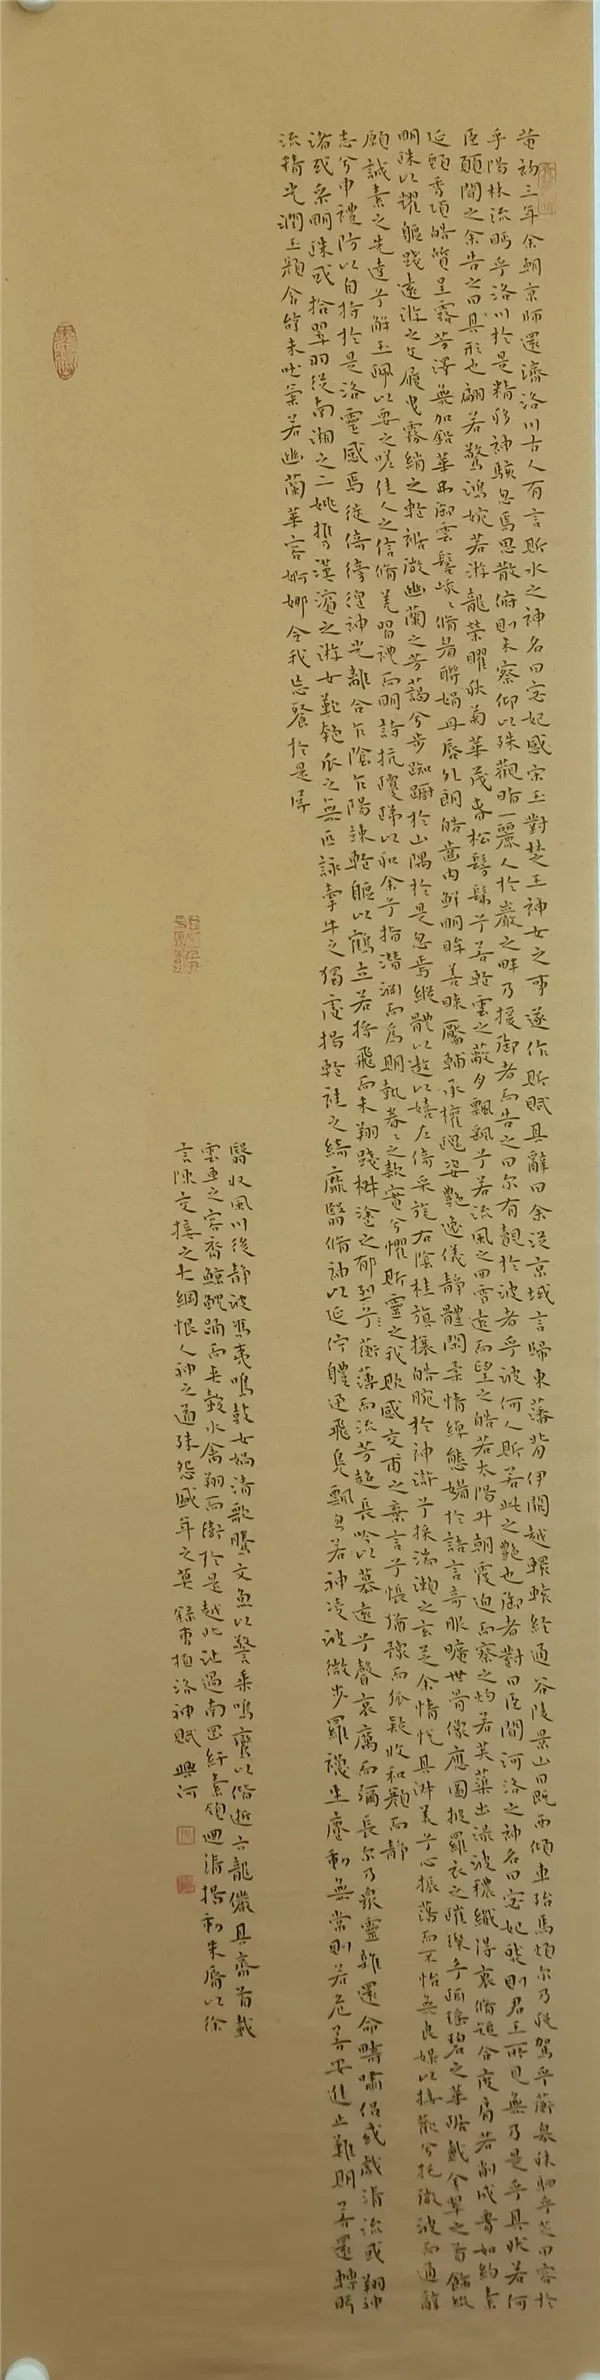 黄初三年余朝京師還濟洛川古人有言斯水之神名曰宓妃感宋玉對楚王神女之事遂作斯賦其辭曰余從京域言歸東藩背伊闕越轘轅經通谷陵景山日既西傾車殆馬煩尔乃稅駕乎蘅皋秣駟乎芝田容於
乎陽林流眄乎洛川於是精移神駭忽焉思散俯則未察仰以殊觀睹一麗人於巖之畔乃援御者而告之曰尔有覿於彼者乎彼何人斯若此之艷也御者對曰臣聞河洛之神名曰宓妃然則君王所見無乃是乎其狀若何
臣願聞之余告之曰其形也翩若驚鴻婉若游龍榮曜秋菊華茂春松髣髴兮若輕雲之蔽月飄飖兮若流風之回雪遠而望之皓若太陽升朝霞迫而察之灼若芙蕖出渌波穠纖得衷脩短合度肩若削成腰如約素
延頸秀項皓質呈露芳澤無加鉛華弗御雲髻峩〻脩眉聯娟丹唇外朗皓齒内鮮明眸善睞靨輔承權瓌姿艷逸儀静體閑柔情綽態媚於語言奇服曠世骨像應圖披羅衣之璀璨兮珥瑤碧之華琚戴金翠之首飾綴
明珠以耀軀踐遠游之文履曳霧綃之輕裾微幽蘭之芳藹兮步踟躕於山隅於是忽焉縱體以遨以嬉左倚采旄右陰桂旗攘皓腕於神滸兮採湍瀨之玄芝余情悅其淑美兮心振蕩而不怡無良媒以接歡兮托微波而通辭
願誠素之先達兮解玉珮以要之嗟佳人之信脩羌習禮而明詩抗瓊珶以和余兮指潛淵而為期執眷〻之款實兮懼斯靈之我欺感交甫之棄言兮悵猶豫而狐疑收和顏而静
志兮申禮防以自持於是洛靈感焉徙倚彷徨神光離合乍陰乍陽竦輕軀以鶴立若將飛而未翔踐椒塗之郁烈兮蘅薄而流芳超長吟以慕遠兮聲哀厲而彌長尔乃眾靈雜遝命疇嘯侶或戲清流或翔神
渚或采明珠或拾翠羽從南湘之二姚攜漢濱之游女歎匏瓜之無匹詠牽牛之獨處揚輕袿之綺靡翳脩袖以延佇體迅飛鳧飄忽若神凌波微步羅襪生塵動無常則若危若安進止難期若還轉眄
流精光潤玉顏含辭未吐氣若幽蘭華容婀娜令我忘餐於是屏
翳收風川后静波馮夷鳴鼓女媧清歌騰文魚以警乘鳴鸞以偕逝六龍儼其齊首載
雲車之容裔鯨鯢踊而夾轂水禽翔而衛於是越北沚過南岡紆素領迴清揚動朱唇以徐
言陳交接之大綱恨人神之道殊怨盛年之莫 錄曹植洛神賦 興河